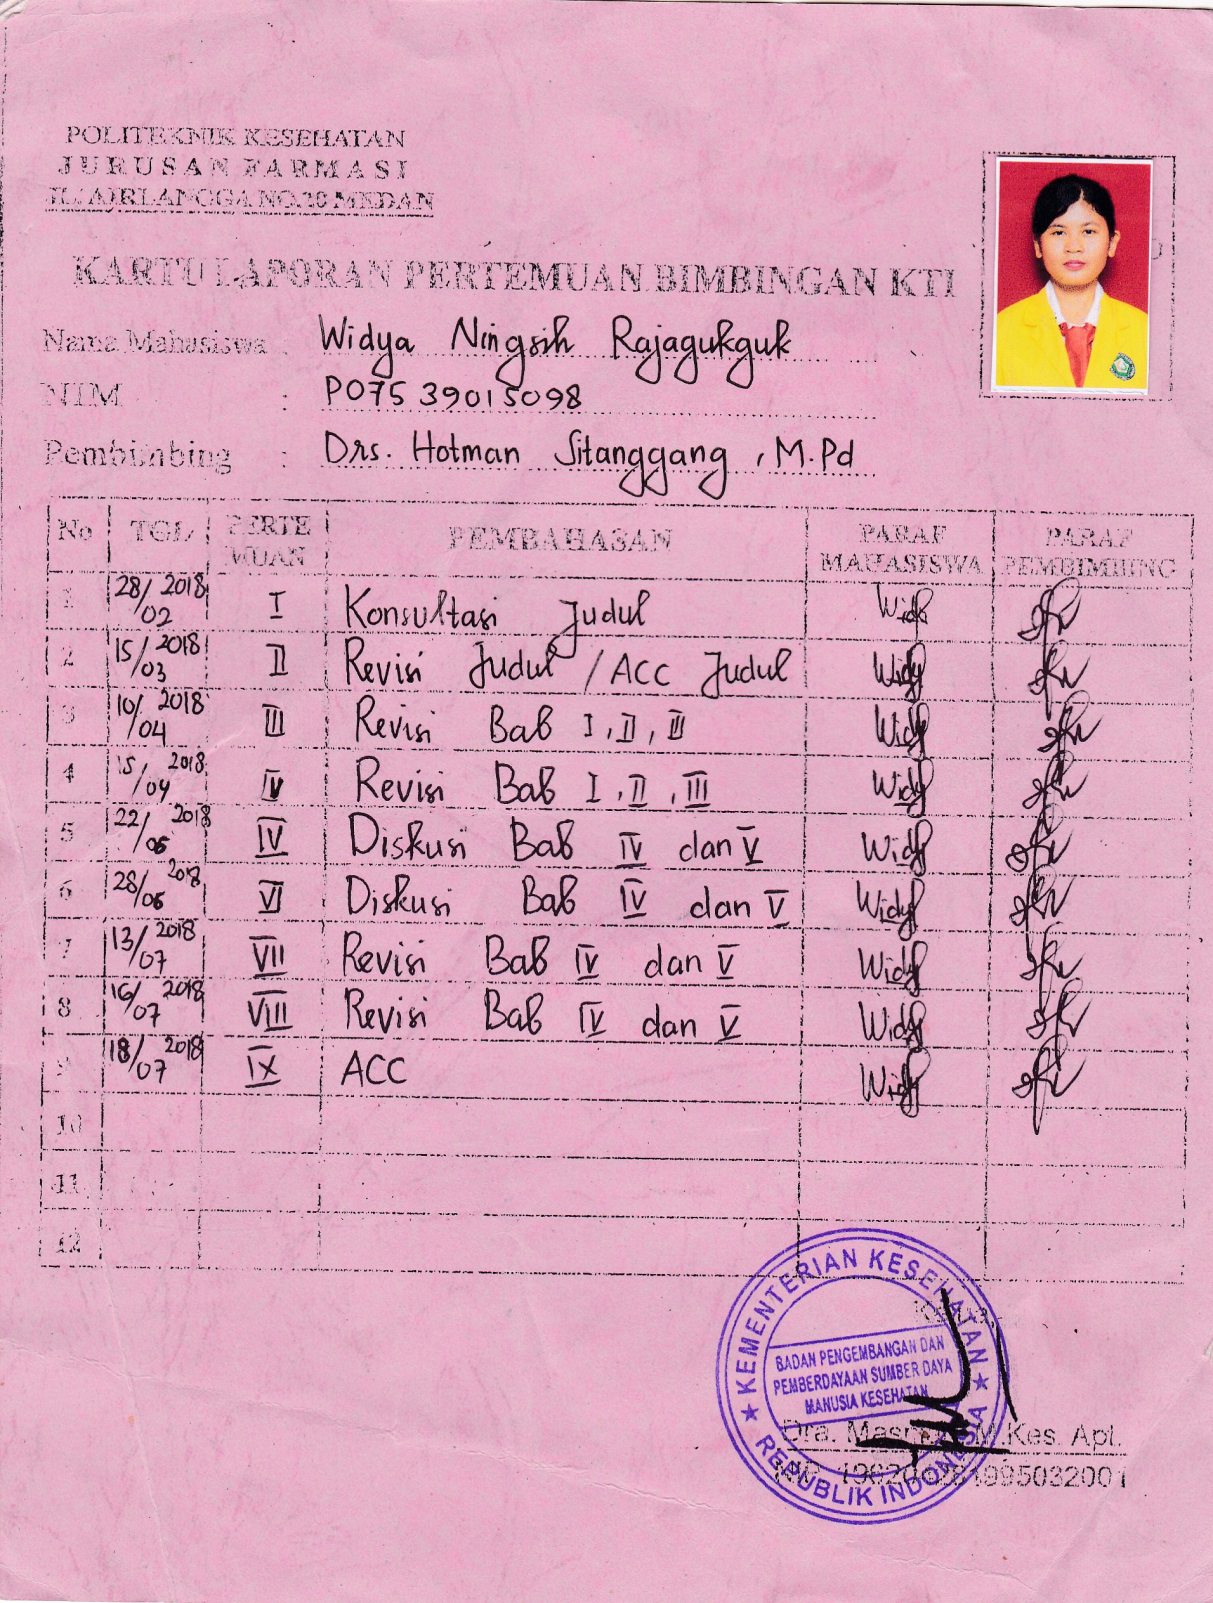 POLITEKNIK KESEHATAN
JURUSAN FARMASI
JL. AIRLANGGA NO.20 MEDAN
KARTU LAPORAN PERTEMUAN BIMBINGAN KTI
Nama Mahasiswa : Widya Ningsih Rajagukguk
NIM : P07539015098
Pembimbing : Drs. Hotman Sitanggang, M.Pd
No TGL PERTEMUAN PEMBAHASAN PARAF MAHASISWA PARAF PEMBIMBING
1 28/02 2018 I Konsultasi Judul Widy
2 15/03 2018 II Revisi Judul / ACC Judul Widy
3 10/04 2018 III Revisi Bab I, II, III Widy
4 15/04 2018 IV Revisi Bab I, II, III Widy
5 22/06 2018 IV Diskusi Bab IV dan V Widy
6 28/06 2018 VI Diskusi Bab IV dan V Widy
7 13/07 2018 VII Revisi Bab IV dan V Widy
8 16/07 2018 VIII Revisi Bab IV dan V Widy
9 18/07 2018 IX ACC Widy
10
11
12
KEMENTERIAN KESEHATAN
Ketua,
BADAN PENGEMBANGAN DAN
PEMBERDAYAAN SUMBER DAYA
MANUSIA KESEHATAN
REPUBLIK INDONESIA
Dra. M.Kes. Apt.
NIP.